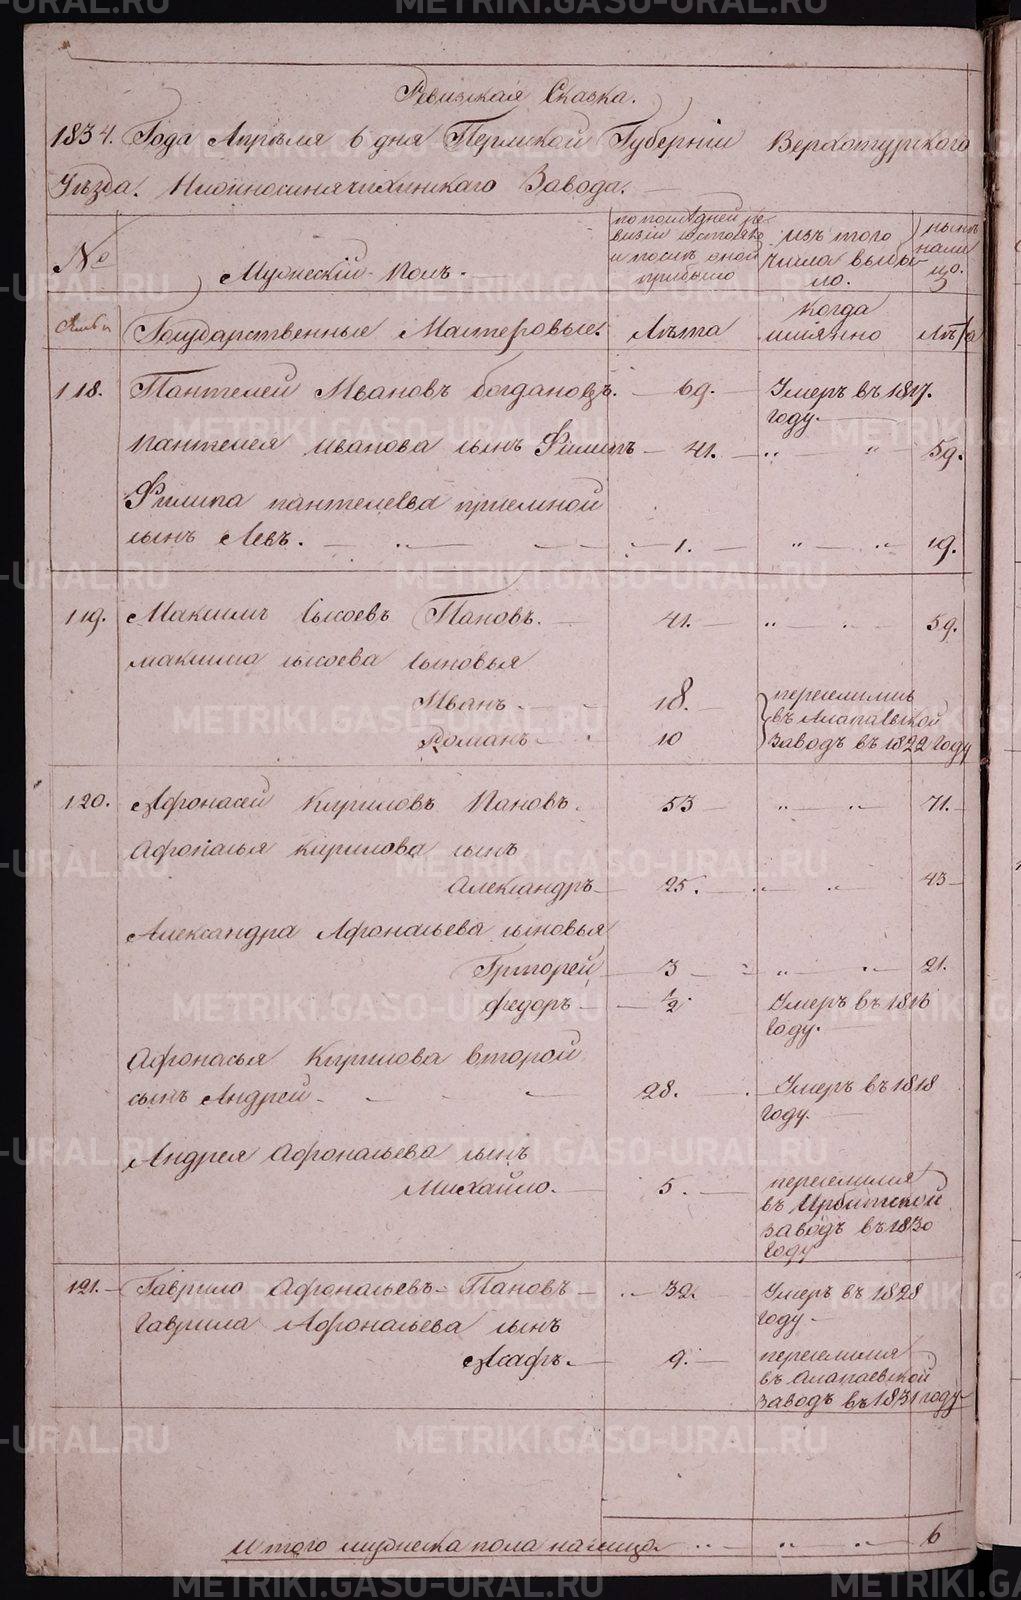 Ревизская Сказка.
1834. Года Апреля 6 дня Пермской Губернiи Верхотурского
Уезда. Нижносинячихинскаго Завода.
№
Мужескiй полъ.
по последней ревизiи состояло и после оной прибыло
изъ того числа выбыло.
ныне на лицо.
Семьи
Государственные Мастеровые:
Лета
Когда имянно
Лета
118. Пантелей Ивановъ Богдановъ. 69. Умеръ въ 1817.
году.
Пантелея иванова сынъ Филипъ 41. „ „ 59.
Филипа пантелеева приемной
сынъ Левъ. „ 1. „ „ 19.
119. Максимъ Сысоевъ Пановъ. 41. „ 59.
максима сысоева сыновья
Иванъ. 18. переселились
въ Алапаевской
Романъ 10 заводъ въ 1822 году
120. Афонасей Кириловъ Пановъ. 53 „ „ 71.
Афонасья кирилова сынъ
Александръ 25. „ „ 43
Александра Афонасьева сыновья
Григорей 3 „ „ 21.
федоръ 1/2. Умеръ въ 1816
году.
Афонасья Кирилова второй
сынъ Андрей 28. Умеръ въ 1818
году.
Андрея Афонасьева сынъ
Михайло. 5. переселился
въ Ирбитской
заводъ въ 1830
году
121. Гаврило Афонасьевъ Пановъ 32. Умеръ въ 1828
году
Гаврила Афонасьева сынъ
Асафъ. 9. переселился
въ Алапаевской
заводъ въ 1831 году
Итого мужеска пола налицо „ „ „ 6
METRIKI.GASO-URAL.RU